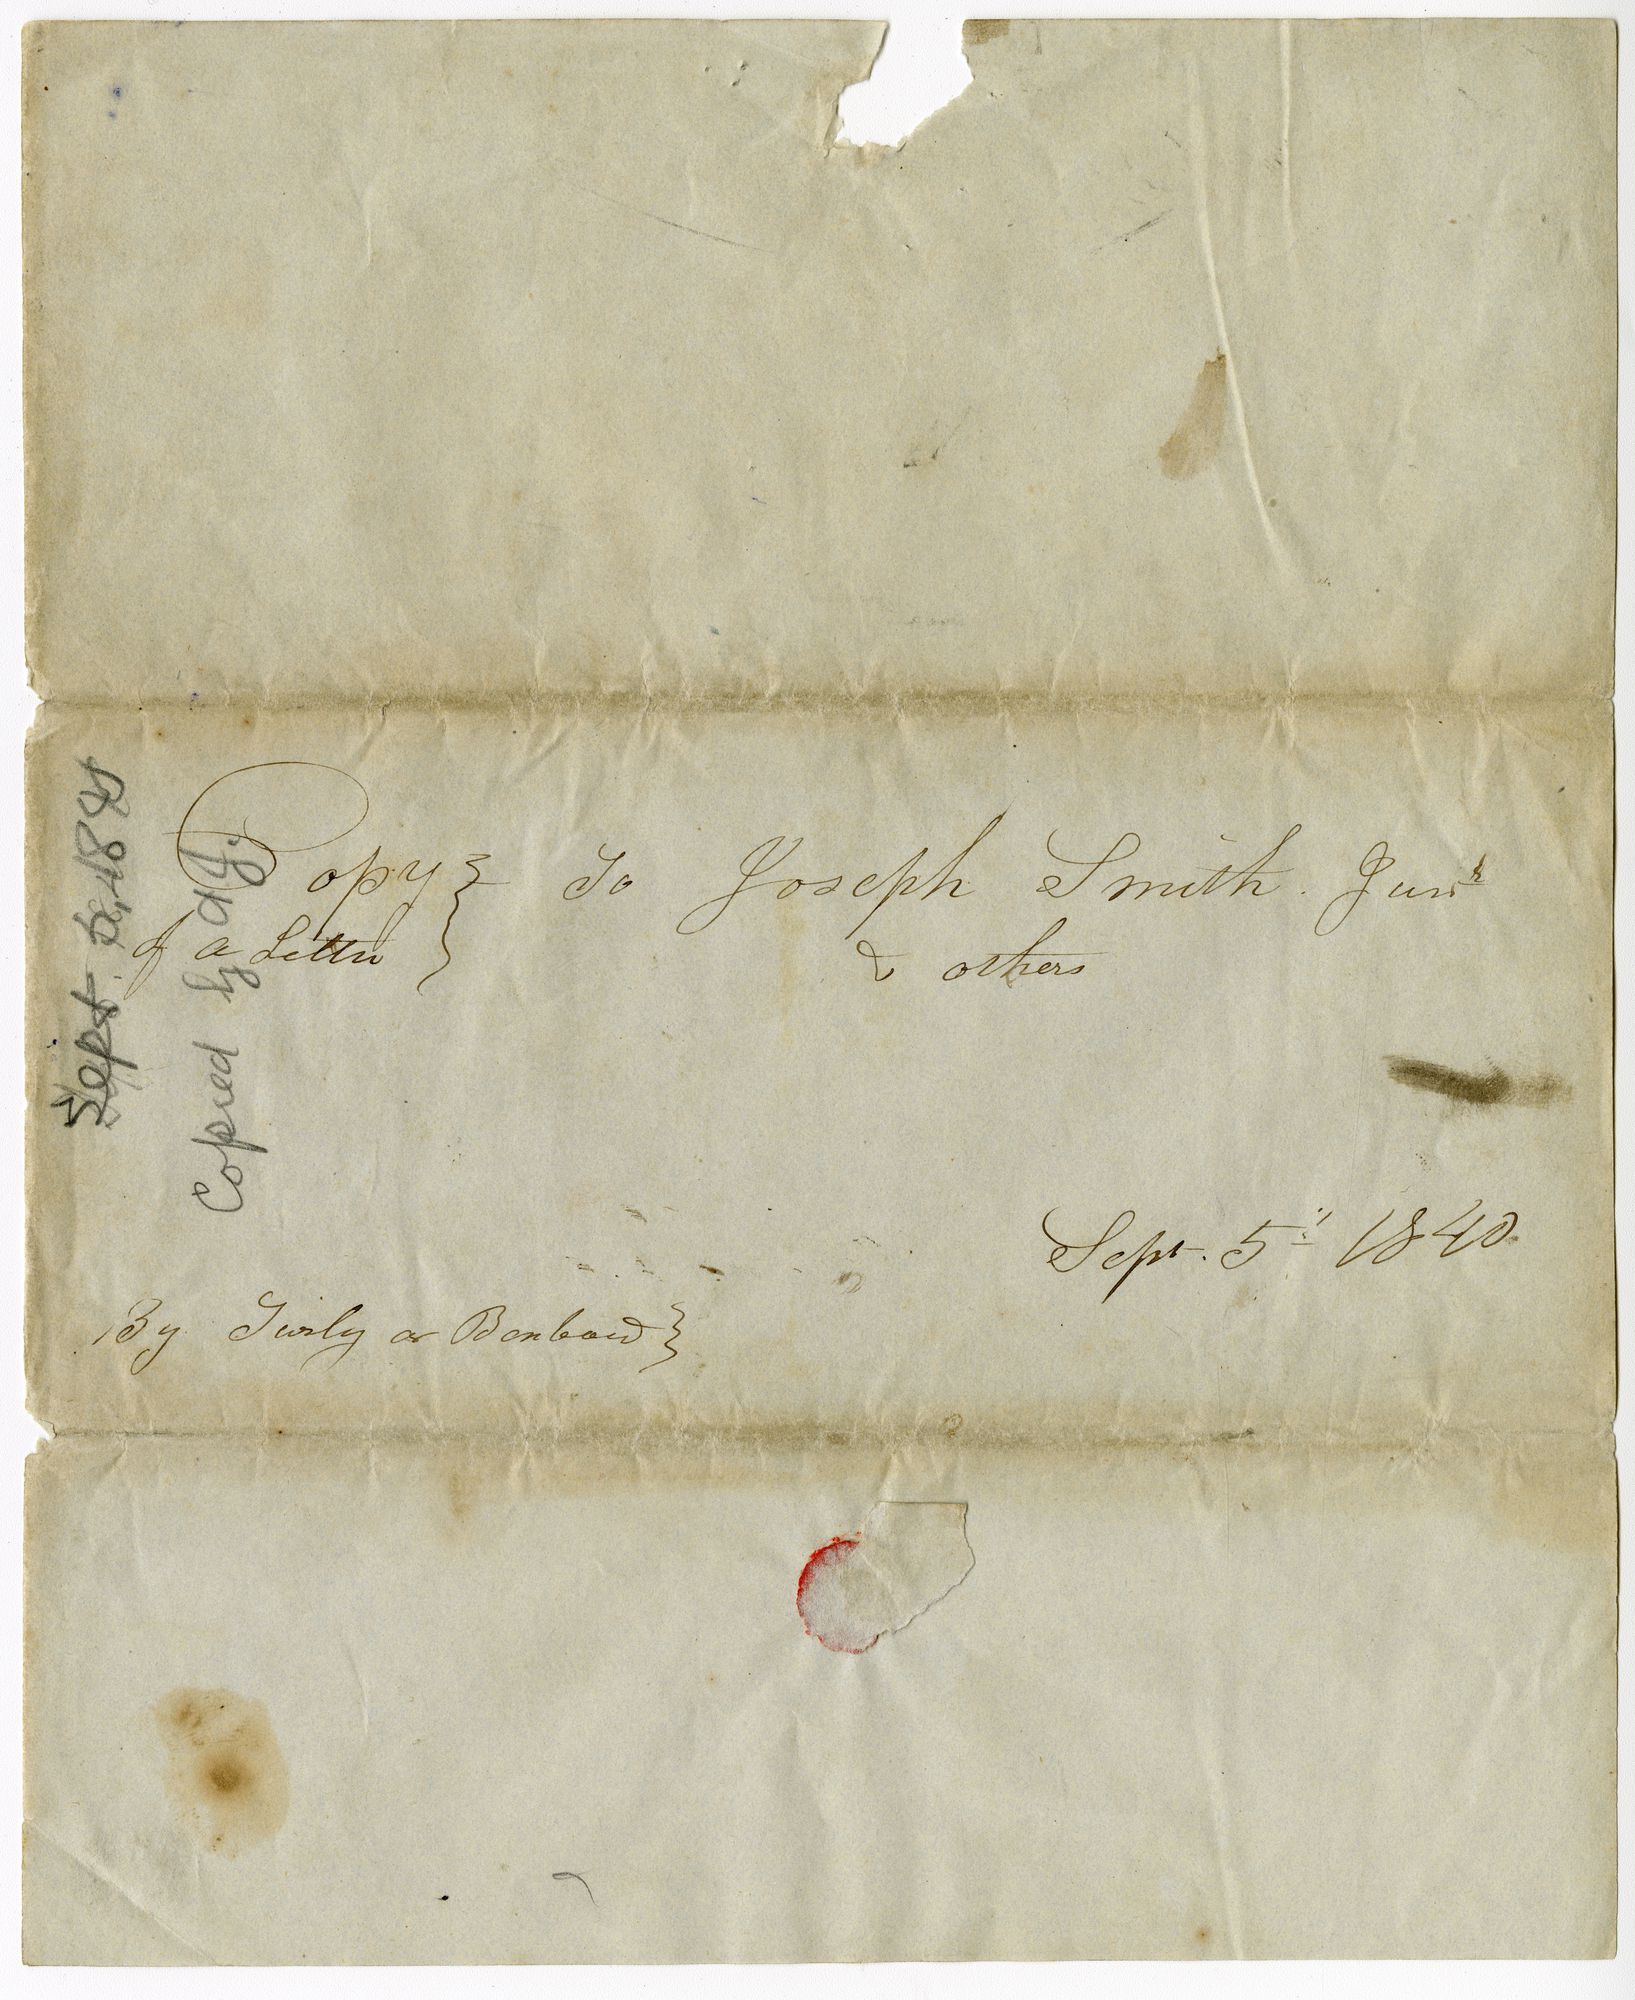 Copy } To Joseph Smith. Junr
of a Letter }
& others
Sept. 5th 1840
By Turly or Benbow }
Sept. 5, 1840
Copied by